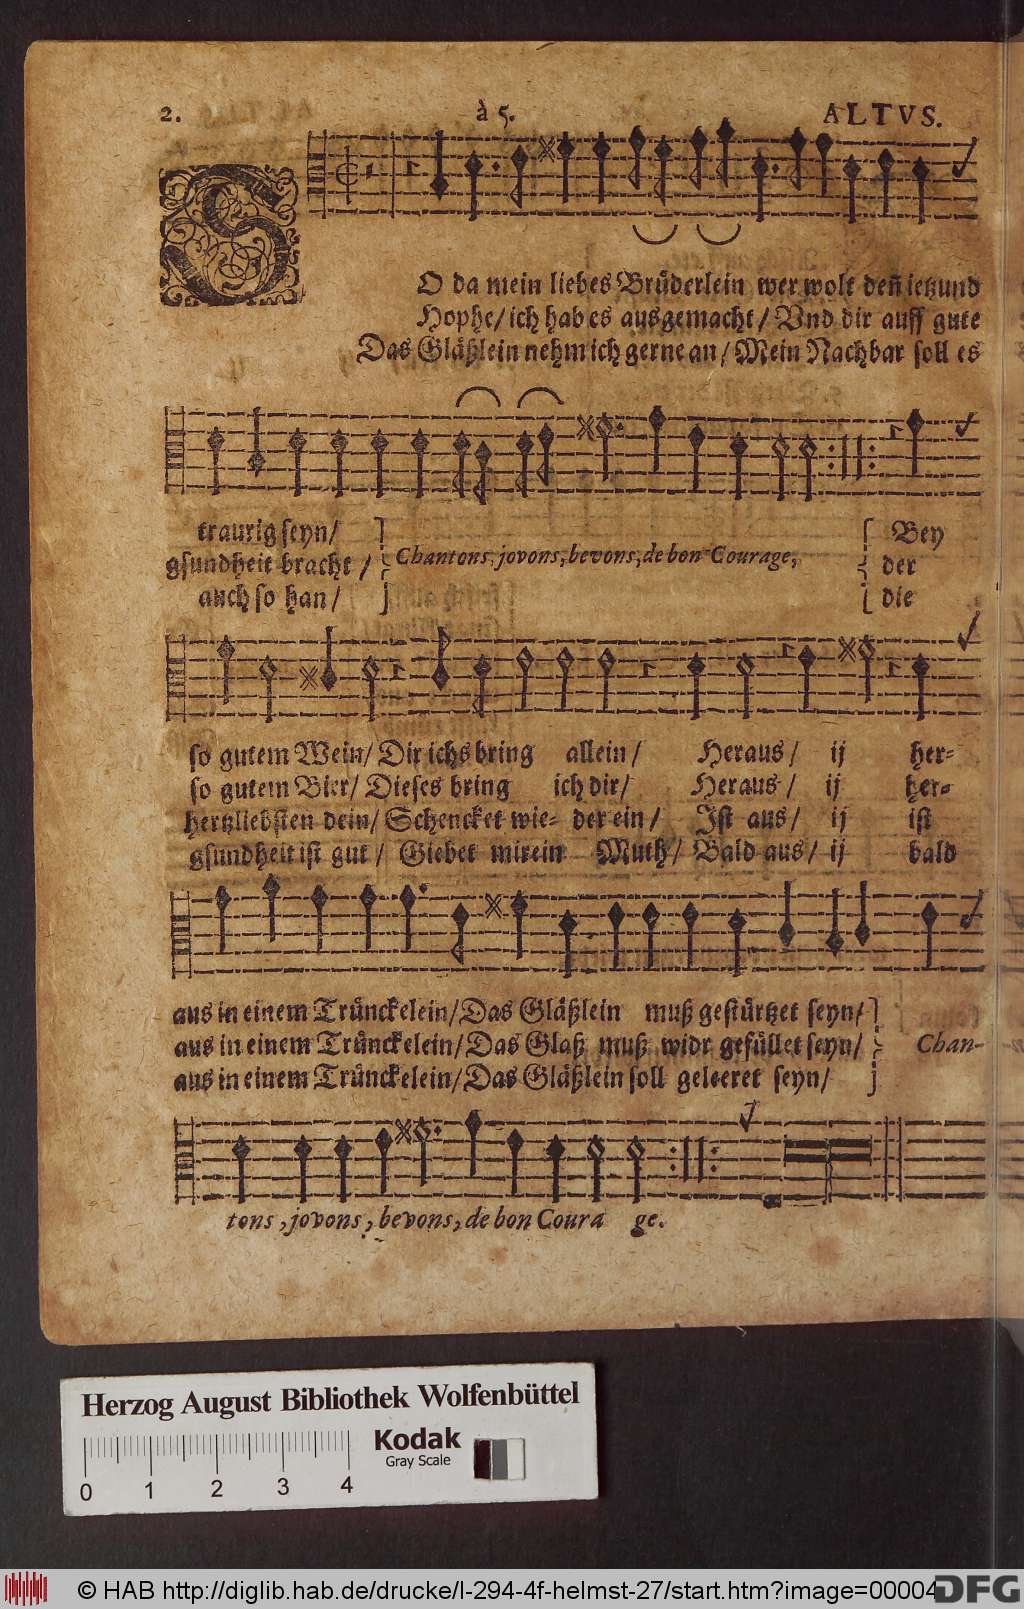 2. à 5. ALTVS.
SO da mein liebes Brůderlein wer wolt deñ ietzund
Hophe/ ich hab es ausgemacht/ Vnd dir auff gute
Das Gläßlein nehm ich gerne an/ Mein Nachbar soll es
traurig seyn/
gsundheit bracht/
auch so han/
Chantons, jovons, bevons, de bon Courage,
Bey
der
die
so gutem Wein/ Dir ichs bring allein/ Heraus/ ij her-
so gutem Bier/ Dieses bring ich dir/ Heraus/ ij her-
hertzliebsten dein/ Schencket wie- der ein/ Ist aus/ ij ist
gsundheit ist gut/ Giebet mir ein Muth/ Bald aus/ ij bald
aus in einem Trůnckelein/ Das Gläßlein muß gestůrtzet seyn/
aus in einem Trůnckelein/ Das Glaß muß widr gefůllet seyn/ Chan-
aus in einem Trůnckelein/ Das Gläßlein soll geleeret seyn/
tons, jovons, bevons, de bon Coura ge.
Herzog August Bibliothek Wolfenbüttel
Kodak
Gray Scale
0 1 2 3 4
© HAB http://diglib.hab.de/drucke/l-294-4f-helmst-27/start.htm?image=00004
DFG